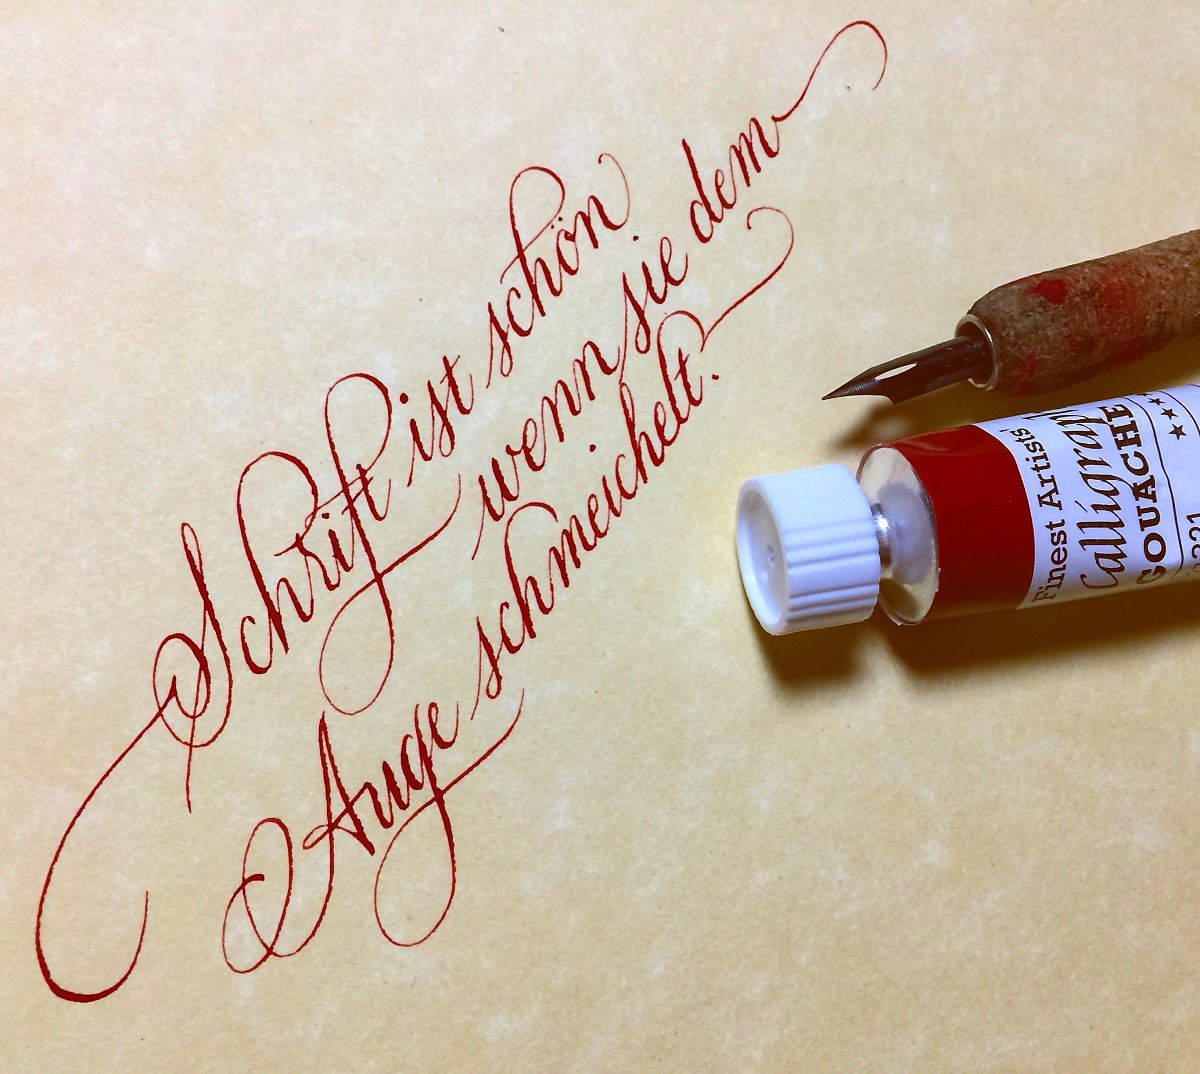 Schrift ist schön
wenn sie dem
Auge schmeichelt.
Finest Artists'
GOUACHE